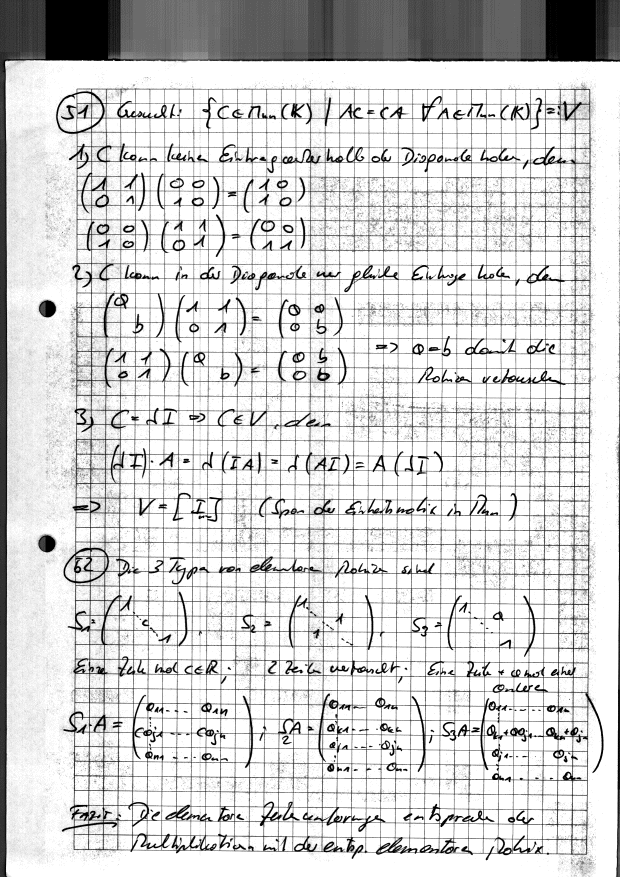 51 Gesucht: {C∈Mnn(K) | AC=CA ∀A∈Mnn(K)}=:V
1) C kann keinen Eintrag außerhalb der Diagonale haben, denn
(1 1; 0 1) (0 0; 1 0) = (1 0; 1 0)
(0 0; 1 0) (1 1; 0 1) = (0 0; 1 1)
2) C kann in der Diagonale nur gleiche Einträge haben, denn
(a ; b) (1 1; 0 1) = (a a; 0 b)
(1 1; 0 1) (a ; b) = (a b; 0 b) => a=b damit die Matrizen vertauschen
3) C=λI => C∈V, denn
(λI)·A = λ(IA) = λ(AI) = A(λI)
=> V=[I] (Span der Einheitsmatrix in Mnn)
52 Die 3 Typen von elementaren Matrizen sind
S1=(1 c 1), S2=(1 1 1), S3=(1 a 1)
Eine Zeile mal c∈R; 2 Zeilen vertauscht; Eine Zeile + a mal einer anderen
S1·A = (a11 ... a1n; caj1 ... cajn; an1 ... ann); S2A = (a11 ... a1n; ak1 ... akn; aj1 ... ajn; an1 ... ann); S3A = (a11 ... a1n; ak1+aaj1 ... akn+aajn; aj1 ... ajn; an1 ... ann)
FAZIT: Die elementaren Zeilenumformungen entsprechen der
Multiplikation mit der entsp. elementaren Matrix.